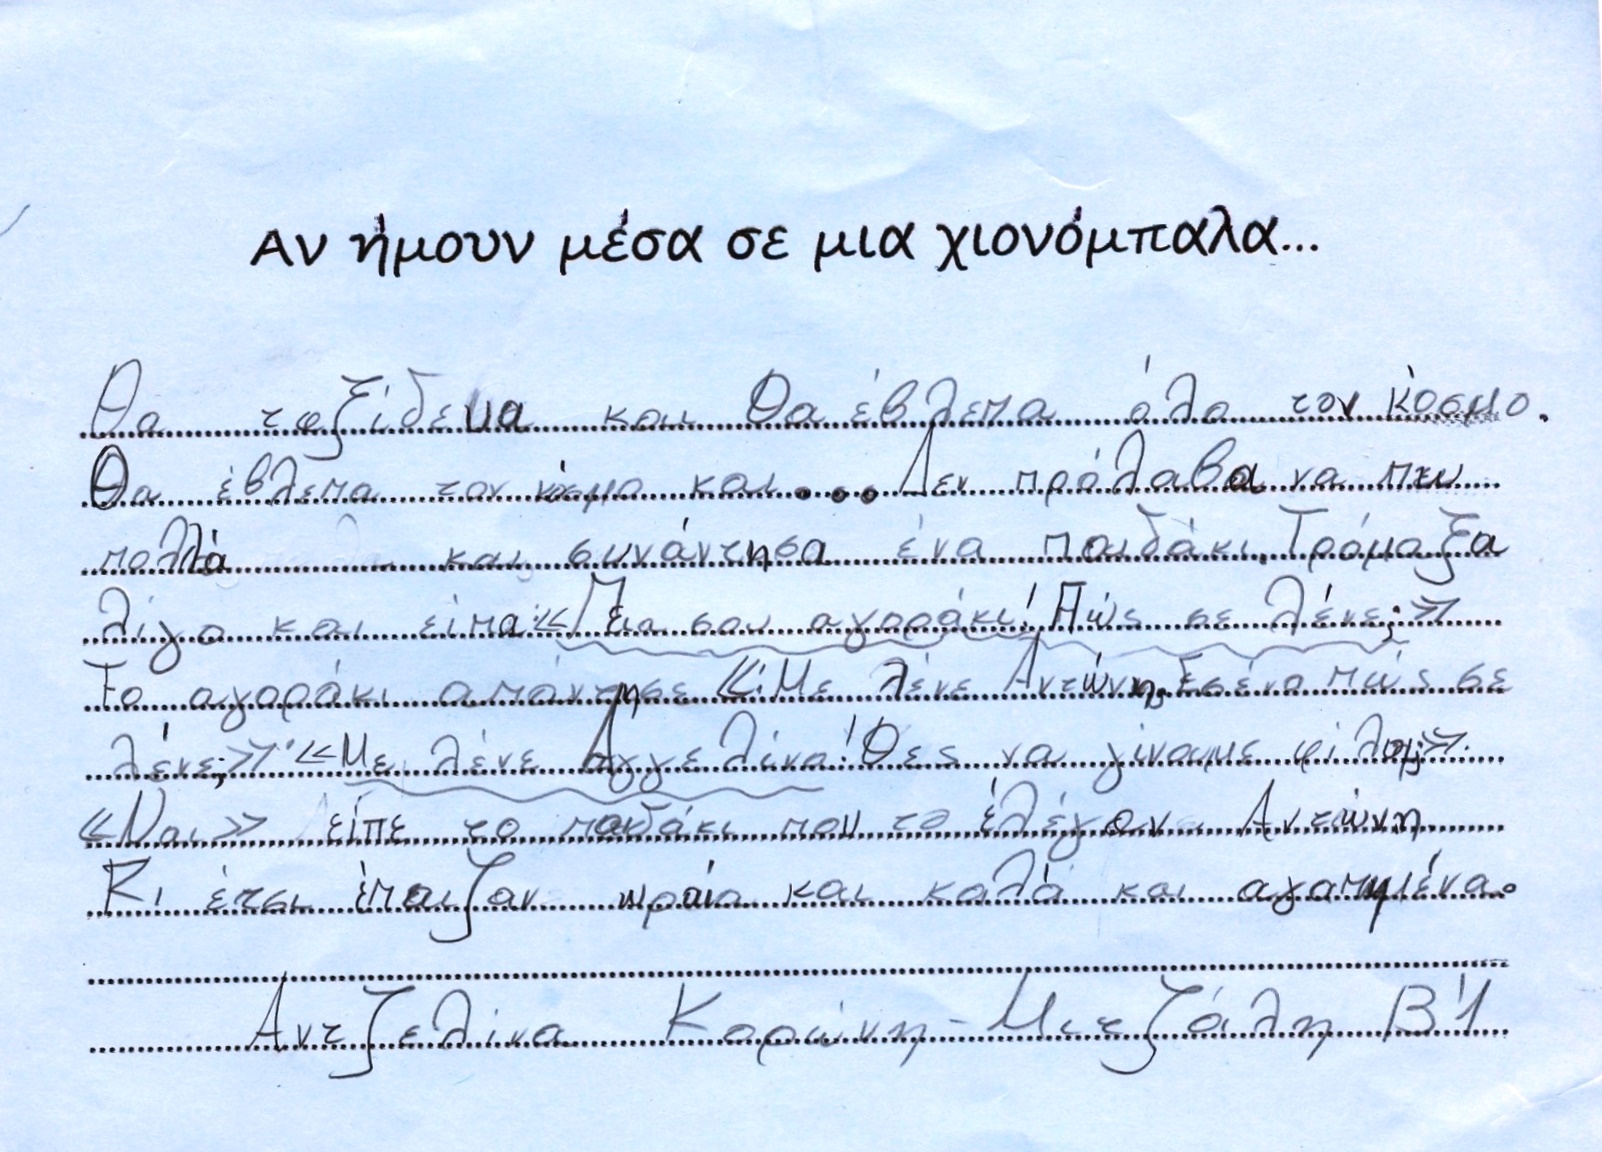 Αν ήμουν μέσα σε μια χιονόμπαλα...
Θα ταξίδευα και θα έβλεπα όλο τον κόσμο.
Θα έβλεπα τον κόσμο και... Δεν πρόλαβα να πω
πολλά και συνάντησα ένα παιδάκι. Τρόμαξα
λίγο και είπα:«Γεια σου αγοράκι! Πώς σε λένε;»
Το αγοράκι απάντησε «:Με λένε Αντώνη. Εσένα πώς σε
λένε;» «Με λένε Αγγελίνα! Θες να γίνουμε φίλοι;».
«Ναι» είπε το παιδάκι που το έλέγαν Αντώνη
Κι έτσι έπαιζαν ωραία και καλά και αγαπημένα.
Αντζελίνα Καρώνη-Μιτζάλη Β'1